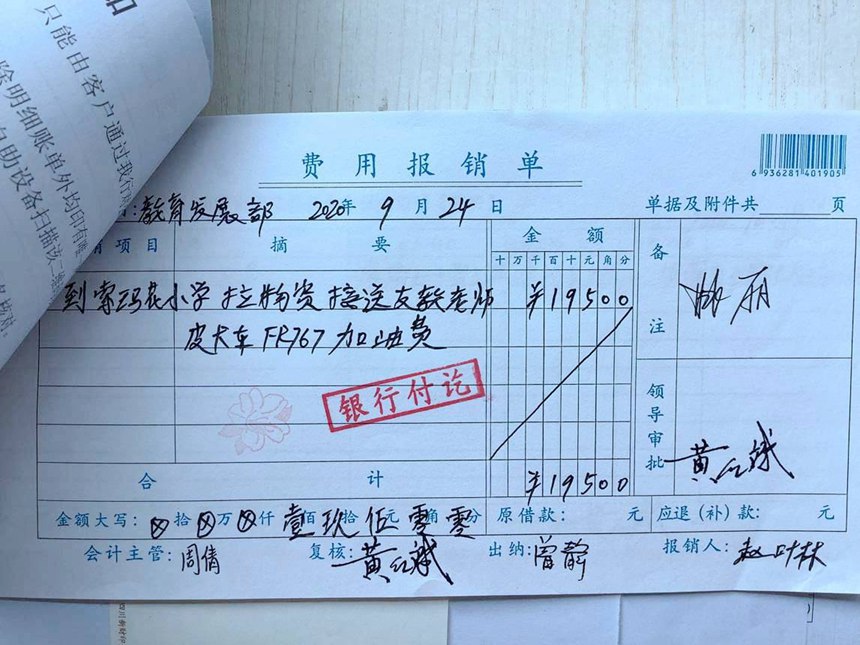 只能由客户通过我行
除明细账单外均印有
自助设备扫描该二维
费用报销单
6 936281 401905
教育发展部 2020年 9 月 24 日 单据及附件共 页
项目 摘要 金额 备注
十万千百十元角分
到索玛花小学拉物资接送支教老师 ¥19500
皮卡车FR767加油费
银行付讫
领导审批 黄红斌
合计 ¥19500
金额大写: ⊗拾⊗万⊗仟壹百玖拾伍元零角零分 原借款: 元 应退(补)款: 元
会计主管:周倩 复核:黄红斌 出纳:曾静 报销人:赵叶林